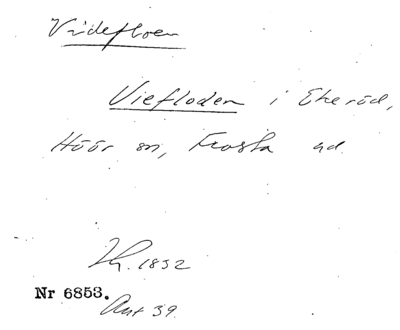 Videfloen
Viefloden i Ekeröd,
Höör sn, Frosta hd
1832
Nr 6853.
Ant 39.